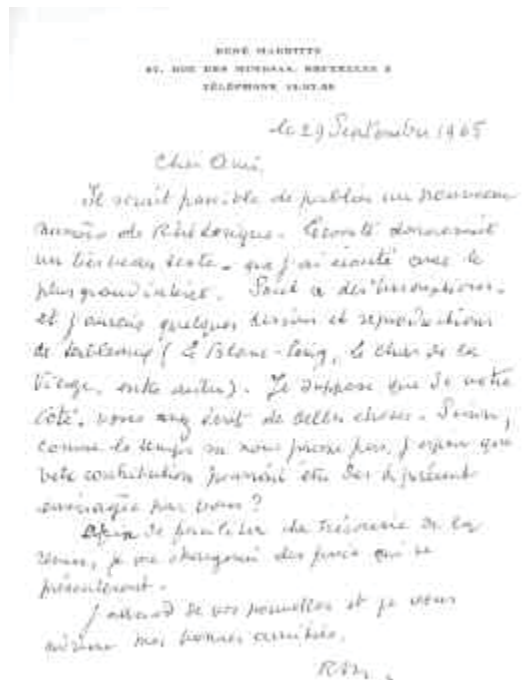 RENÉ MAGRITTE
97, RUE DES MIMOSAS, BRUXELLES 3
TÉLÉPHONE
le 29 Septembre 1965
Cher Ami,
Il serait possible de publier un nouveau
numéro de Rhétorique. Lecomte donnerait
un très beau texte, que j'ai écouté avec le
plus grand intérêt. Scut a des "Inscriptions"
et j'aurais quelques dessins et reproductions
de tableaux ( Le Blanc-Seing, le chœur de la
Vierge, entre autres). Je suppose que de votre
côté, vous avez écrit de belles choses. Sinon,
comme le temps ne nous presse pas, j'espère que
votre contribution pourrait être dès à présent
envisagée par vous ?
de faciliter la trésorerie de la
revue, je me chargerai des frais qui se
présenteront.
J'attend de vos nouvelles et je vous
mes bonnes amitiés,
RM.